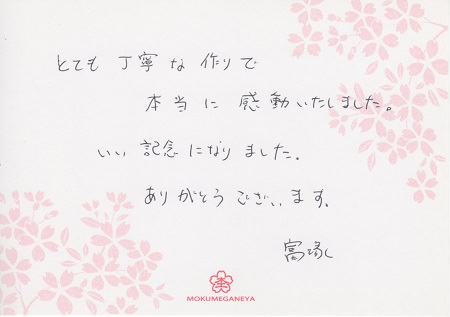 とても丁寧な作りで
本当に感動いたしました。
いい記念になりました.
ありがとうございます.
MOKUMEGANEYA